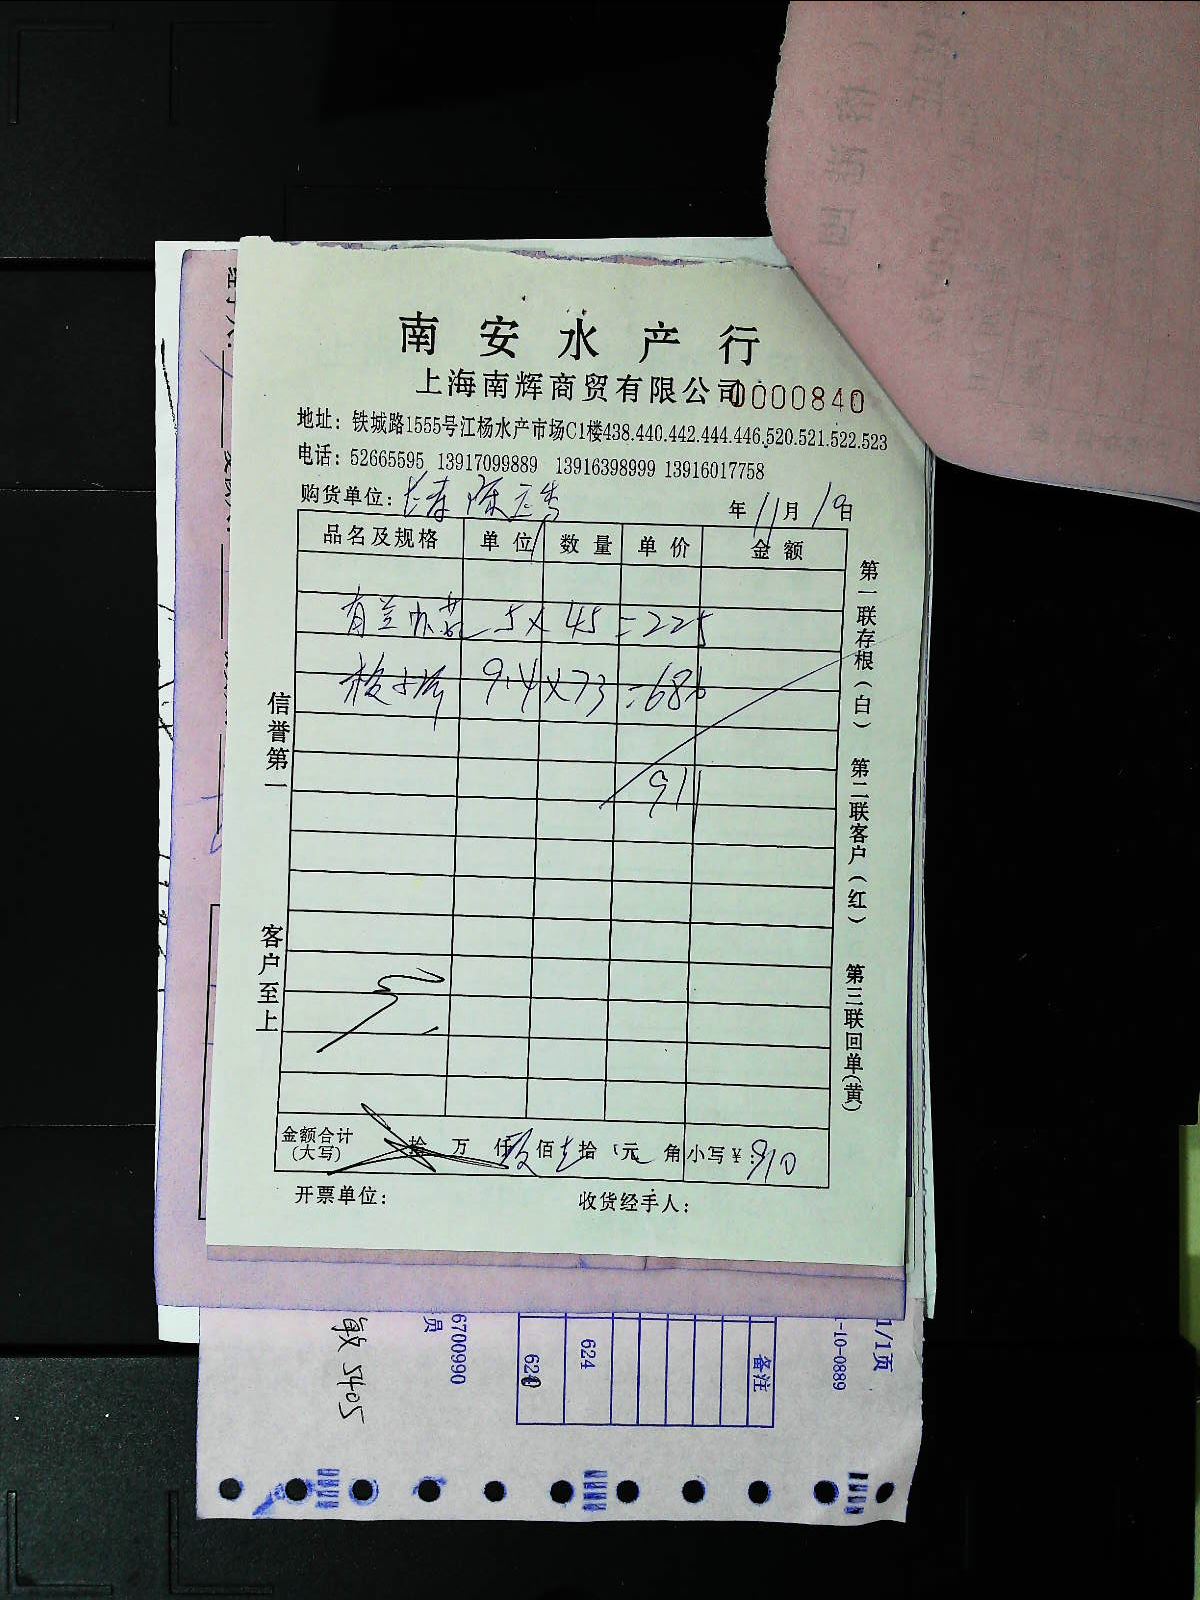 南安水产行
上海南辉商贸有限公司 0000840
地址：铁城路1555号江杨水产市场C1楼438.440.442.444.446.520.521.522.523
电话：52665595 13917099889 13916398999 13916017758
购货单位： 年 11月 19日
品名及规格 单位 数量 单价 金额
5 x 45 = 225
9.4 x 73 = 686
911
信誉第一
客户至上
第一联存根（白）
第二联客户（红）
第三联回单（黄）
金额合计（大写） 拾 万 仟 佰 拾 元 角 小写￥：910
开票单位： 收货经手人：
1/1页
1-10-0889
备注
624
620
6700990
员
敏 5405